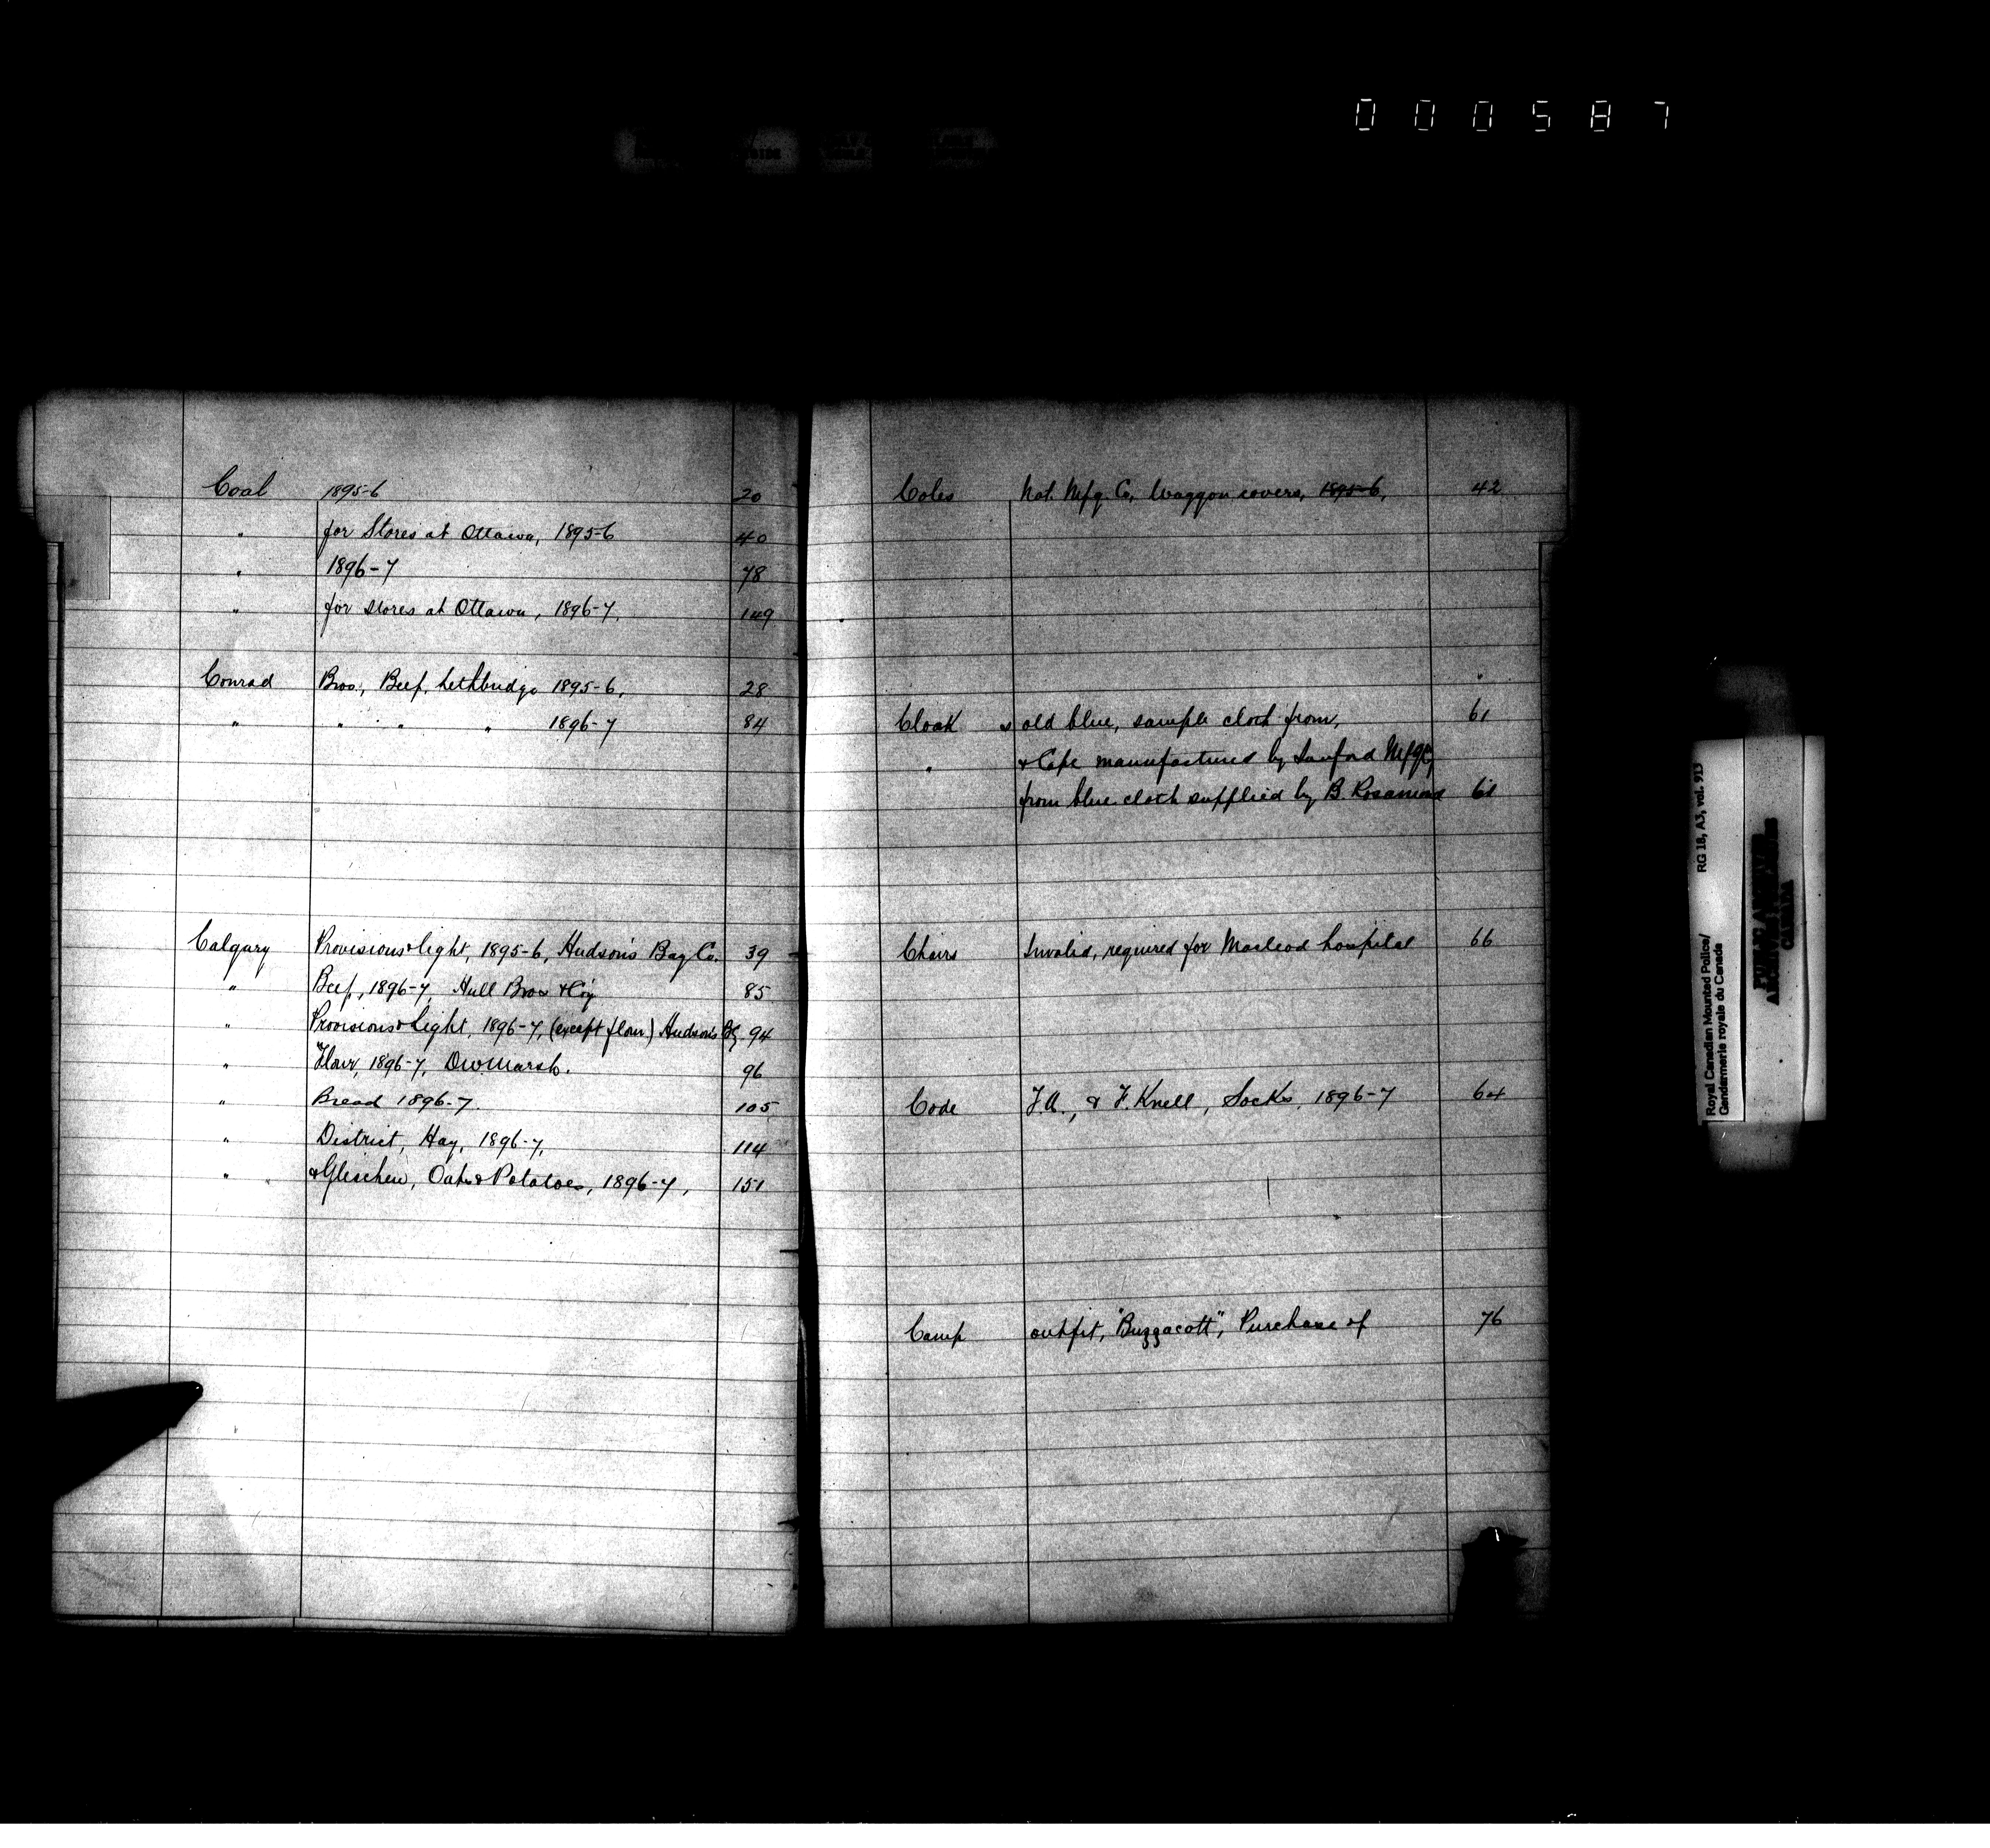 000587
Coal 1895-6 20
" for Stores at Ottawa, 1895-6 40
" 1896-7 78
" for stores at Ottawa, 1896-7, 149
Conrad Bros., Beef, Lethbridge 1895-6, 28
" " " " 1896-7 84
Calgary Provisions & light, 1895-6, Hudson's Bay Co. 39
" Beef, 1896-7, Hull Bros & Coy 85
" Provisions & Light, 1896-7, (except flour) Hudson's By 94
" Flour, 1896-7, DW Marsh. 96
" Bread 1896-7. 105
" District, Hay, 1896-7, 114
" " & Gleichen, Oats & Potatoes, 1896-7, 151
Coles Nat. Mfg. Co, Waggon covers, 1895-6, 42
Cloak s old blue, sample cloth from, 61
" & Cape manufactured by Sanford Mfg Co,
from blue cloth supplied by B. Rosamond 61
Chairs Invalid, required for Macleod hospital 66
Code T.A., & F. Knell, Socks, 1896-7 64
Camp outfit, "Buzzacott", Purchase of 76
Royal Canadian Mounted Police/
Gendarmerie royale du Canada
RG 18, A3, vol. 913
PUBLIC ARCHIVES
ARCHIVES PUBLIQUES
CANADA